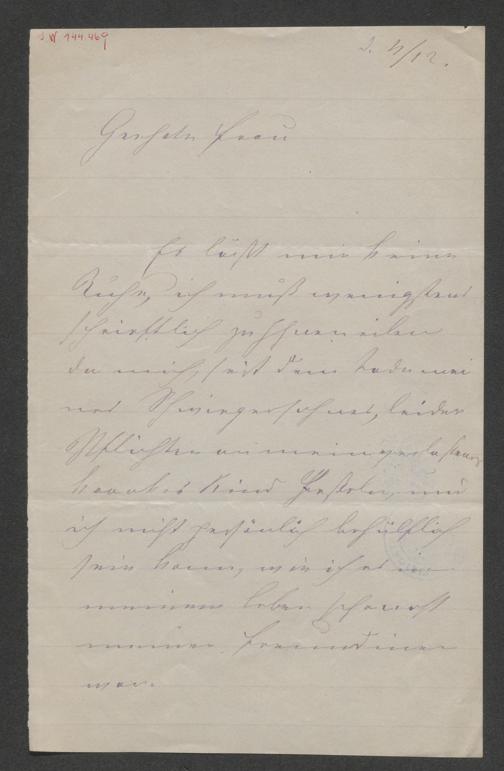 I.N. 144.469
d. 4/12.
Geehrte Frau
Es läßt mir keine
Ruhe, ich muß wenigstens
schriftlich zu Ihnen eilen
da mich, seit dem Tode mei
nes Schwiegersohnes, leider
Pflichten an mein verlaßenes
krankes Kind feßeln, und
ich nicht persönlich behülflich
sein kann, wie ich es in
meinem Leben sonst
meinen Freundinen
war.